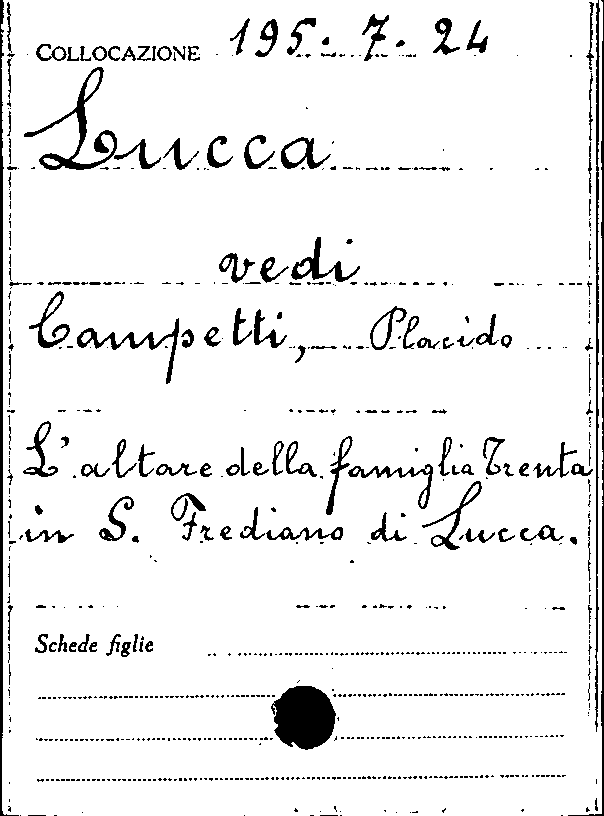 COLLOCAZIONE 195.7.24
Lucca
vedi
Campetti, Placido
L'altare della famiglia Trenta
in S. Frediano di Lucca.
Schede figlie